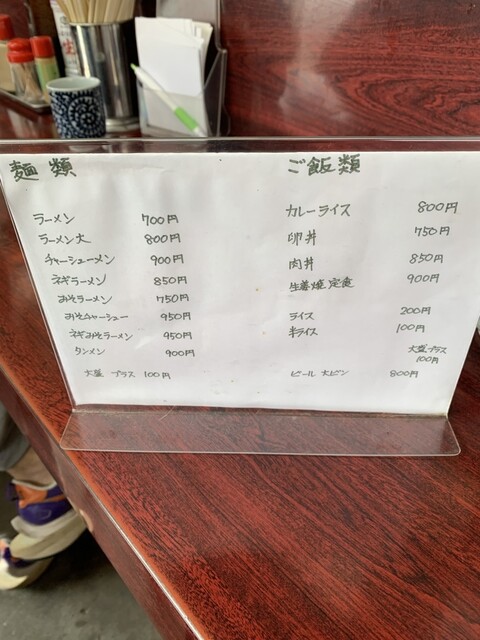 麺類
ラーメン 700円
ラーメン大 800円
チャーシューメン 900円
ネギラーメン 850円
みそラーメン 750円
みそチャーシュー 950円
ネギみそラーメン 950円
タンメン 900円
大盛 プラス 100円
ご飯類
カレーライス 800円
卵丼 750円
肉丼 850円
生姜焼定食 900円
ライス 200円
半ライス 100円
大盛プラス
100円
ビール 大ビン 800円